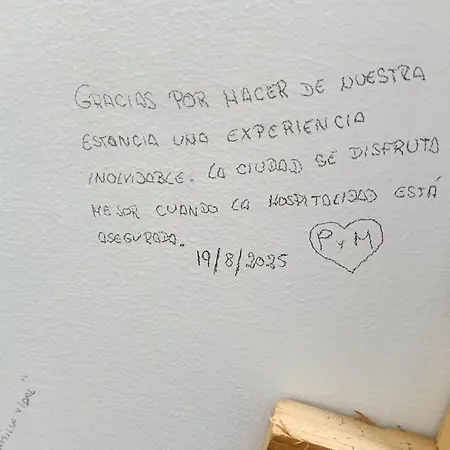 GRACIAS POR HACER DE NUESTRA
ESTANCIA UNA EXPERIENCIA
INOLVIDABLE. LA CIUDAD SE DISFRUTA
MEJOR CUANDO LA HOSPITALIDAD ESTÁ
ASEGURADA.
19/8/2025
P y M
VIDAL"